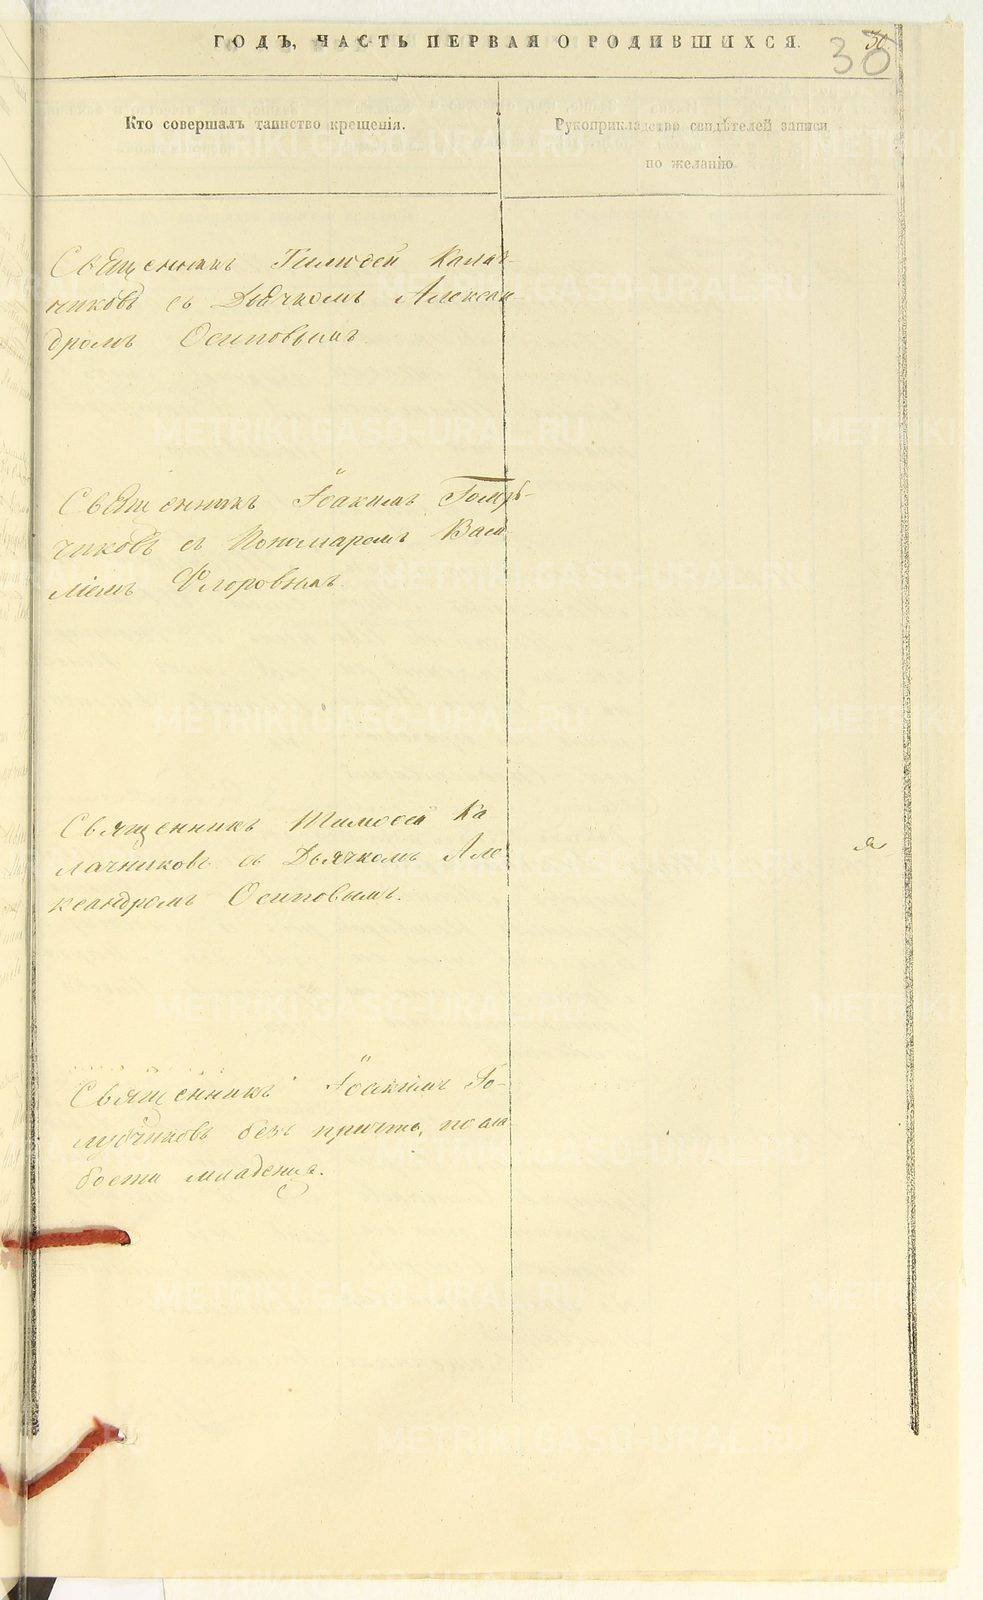 ГОДЪ, ЧАСТЬ ПЕРВАЯ О РОДИВШИХСЯ.
30
Кто совершалъ таинство крещенія.
Рукоприкладство свидѣтелей записи
по желанію
Священникъ Тимоѳей Калач-
никовъ съ Дьячкомъ Алексан-
дромъ Осиповымъ.
Священникъ Іоакимъ Голуб-
чиковъ съ Пономаремъ Васи
ліемъ Флоровымъ.
Священникъ Тимоѳей Ка
лачниковъ съ Дьячкомъ Але
ксандромъ Осиповымъ.
Священникъ Іоакимъ Го-
лубчиковъ безъ причта, по сла
бости младенца.
METRIKI.GASO-URAL.RU